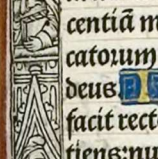 centiā m
catorum
deus. D
facit rect
tiens: nu